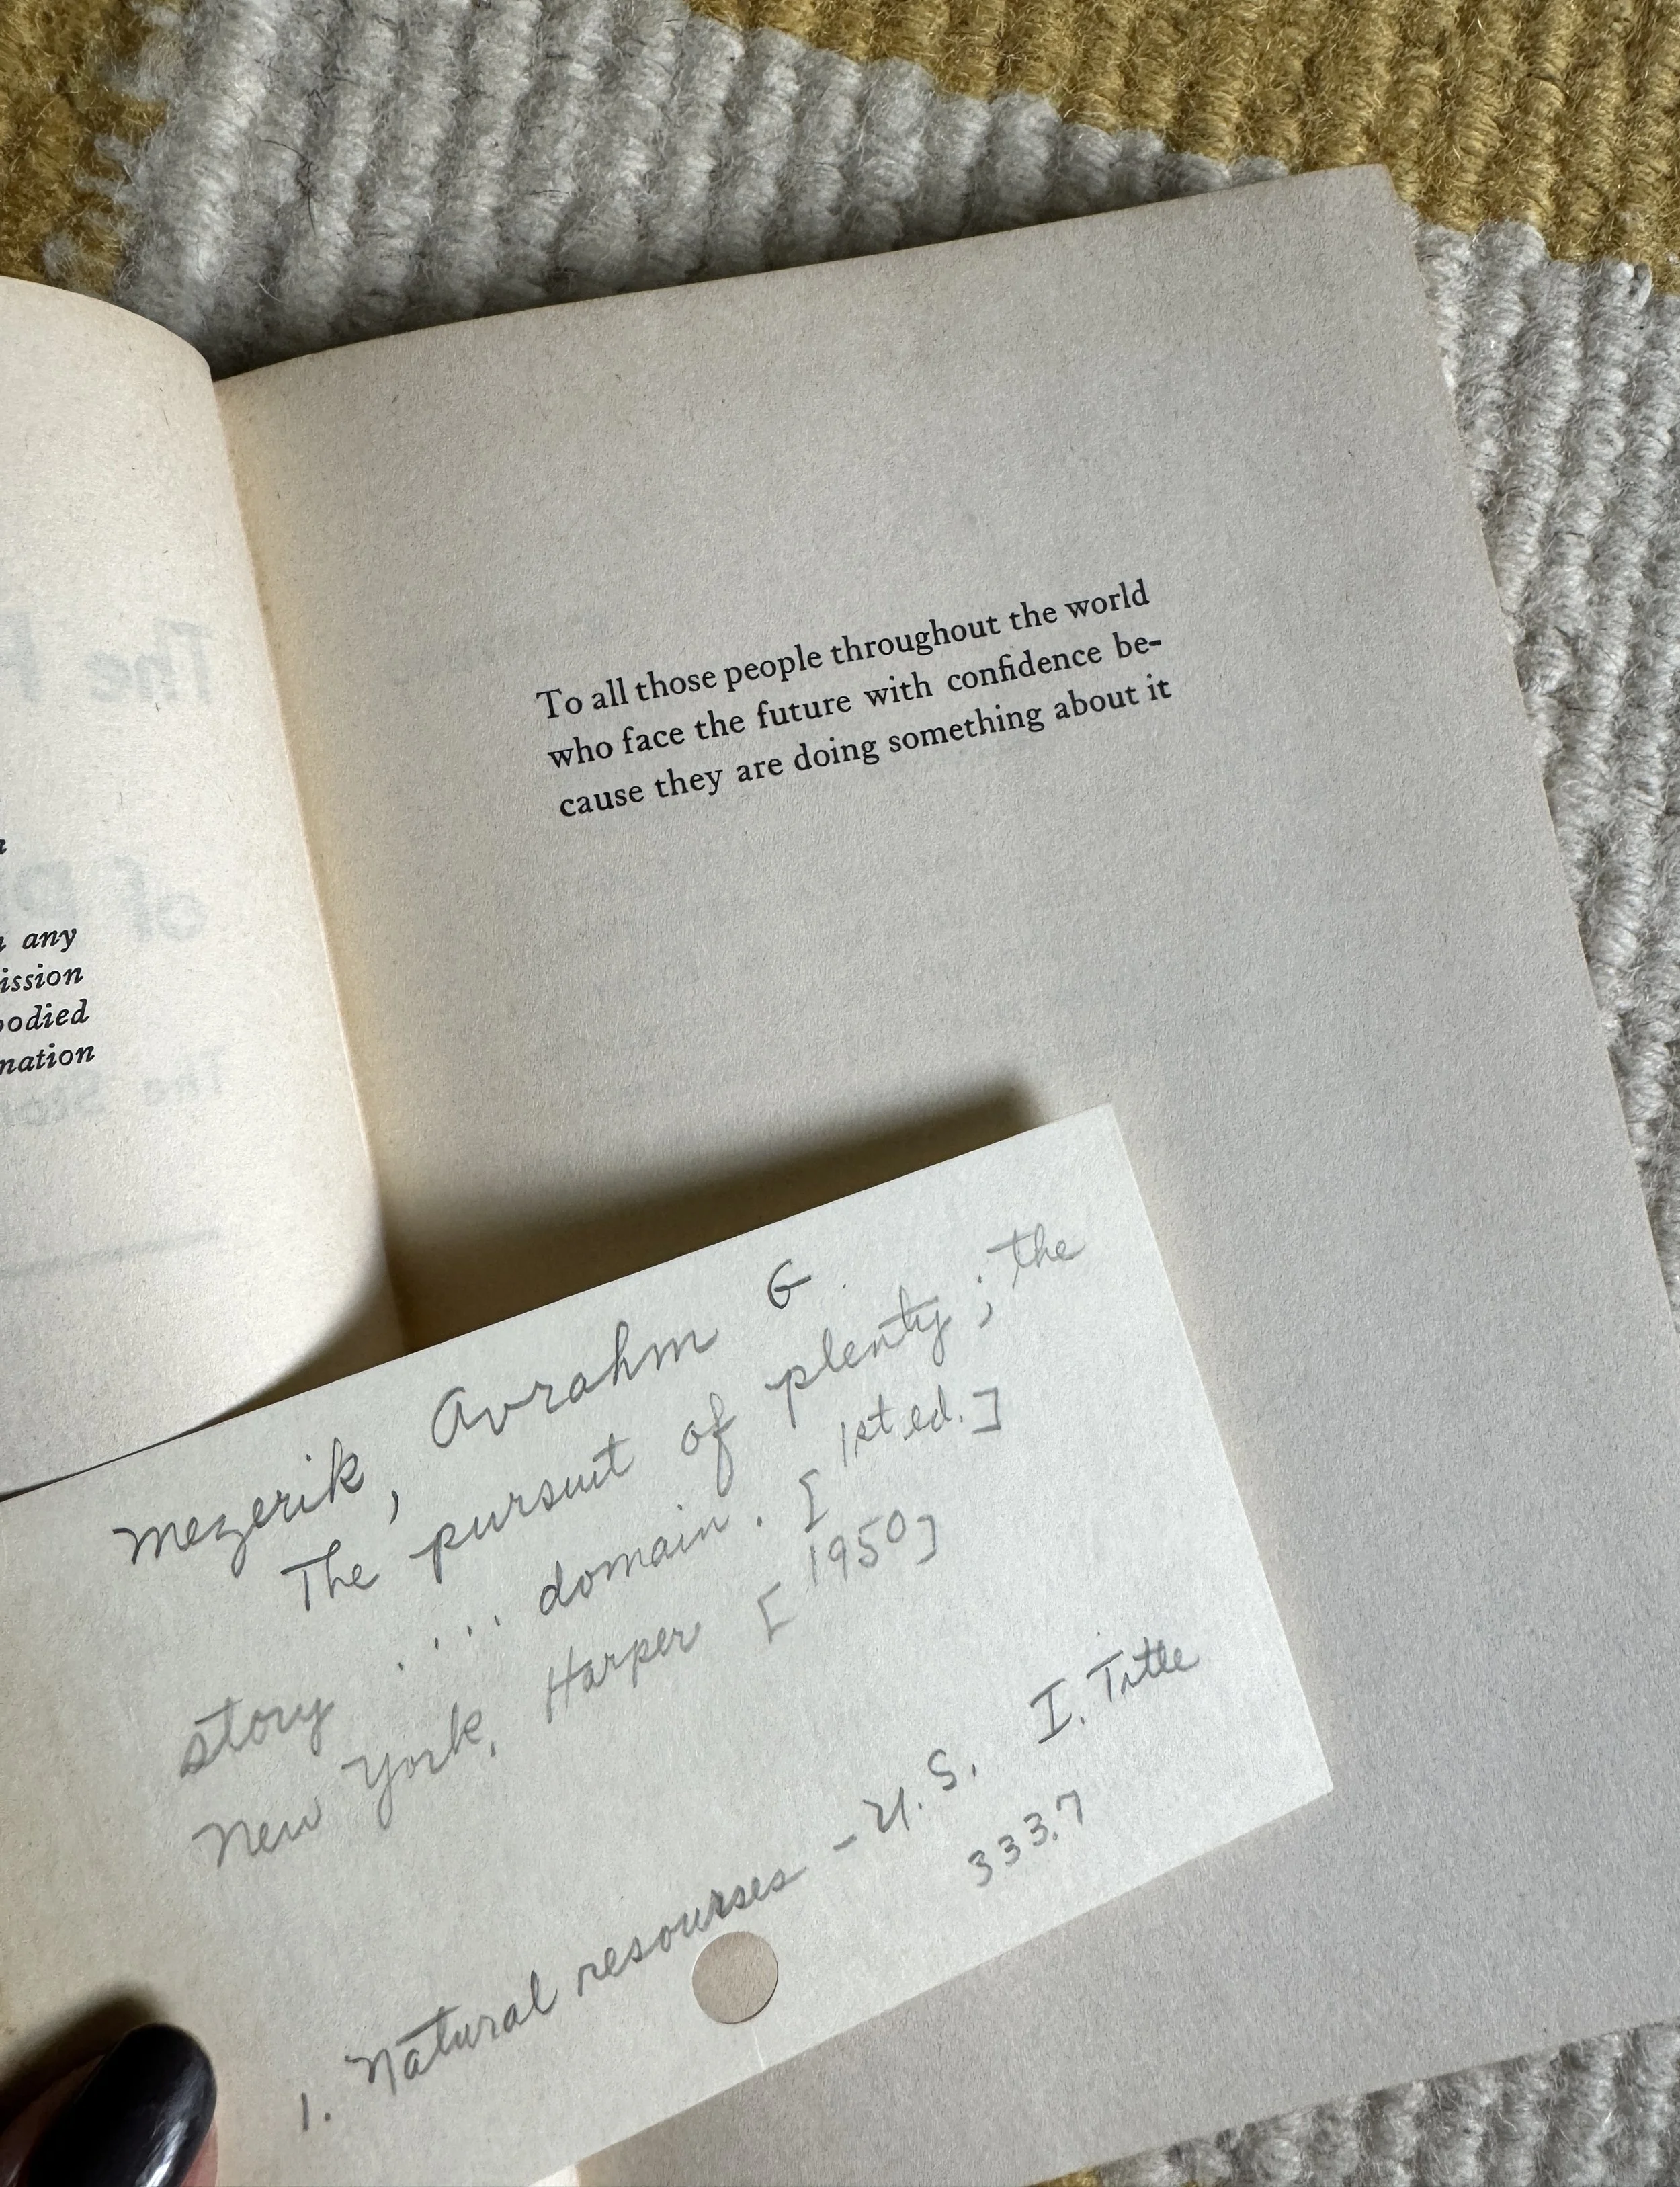 any
ission
bodied
nation
To all those people throughout the world
who face the future with confidence be-
cause they are doing something about it
Mezerik, Avrahm G.
The pursuit of plenty ; the
story . . . . domain. [1st ed.]
New York, Harper [1950]
1. Natural resourses - U.S. I. Title
333.7